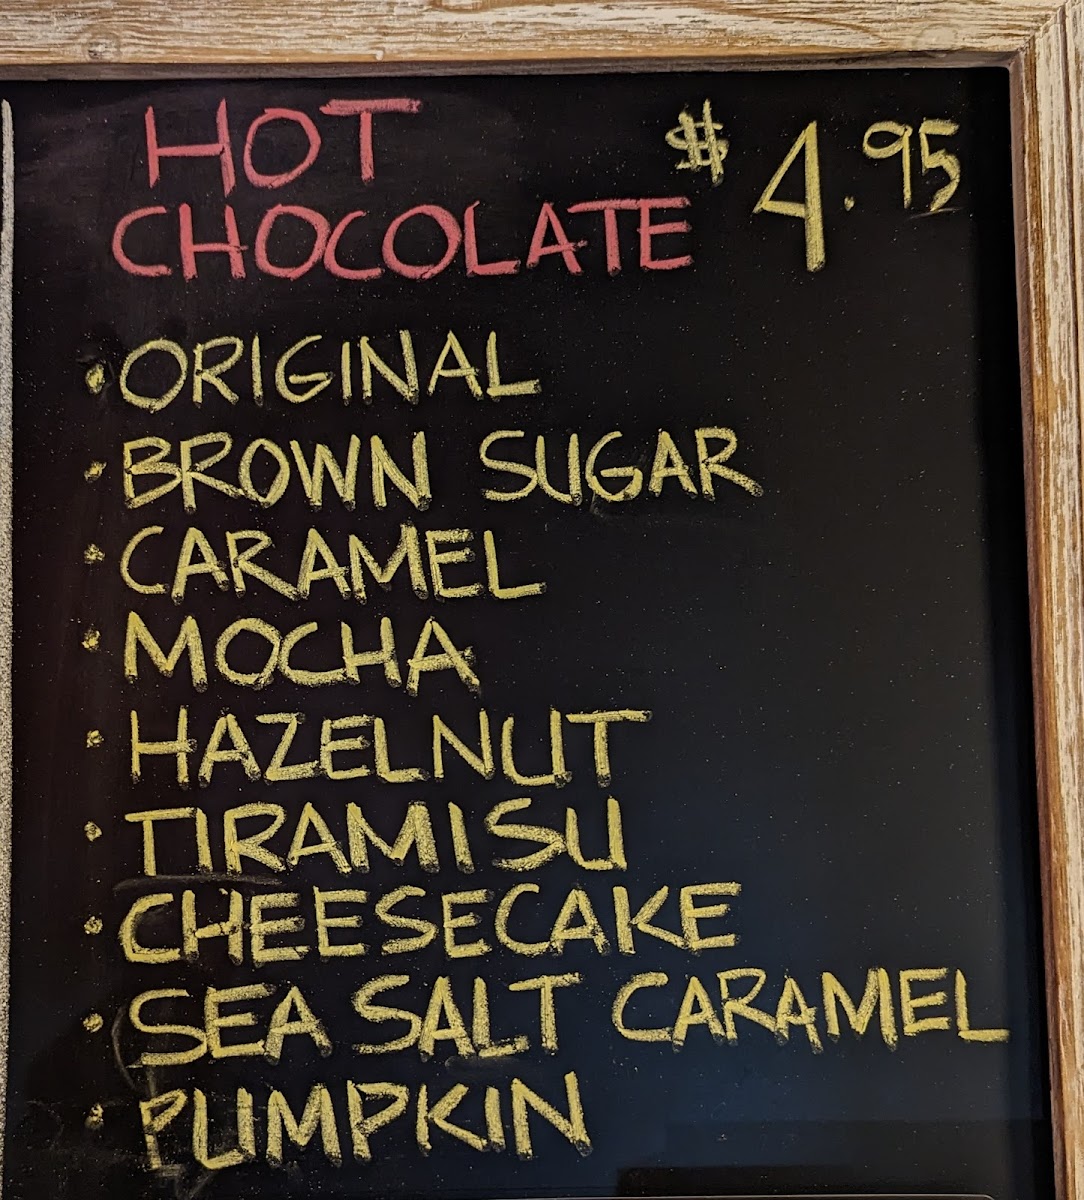 HOT
CHOCOLATE
$4.95
• ORIGINAL
• BROWN SUGAR
• CARAMEL
• MOCHA
• HAZELNUT
• TIRAMISU
• CHEESECAKE
• SEA SALT CARAMEL
• PUMPKIN